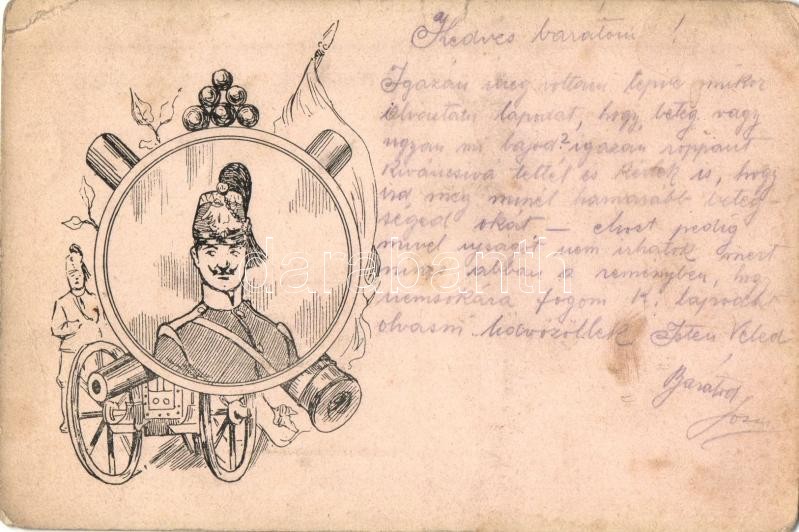 Kedves barátom !
Igazán meg voltam lepve mikor
elolvastam lapodat, hogy beteg vagy
ugyan mi bajod? igazán roppant
kiváncsivá tettél és kérlek is, hogy
ird meg minél hamarább beteg-
séged okát — most pedig
mivel ujságot nem irhatok mert
nincs abban a reményben, hog
nemsokára fogom K. lapodat
olvasni üdvözöllek Isten Veled
Barátod
darabanth